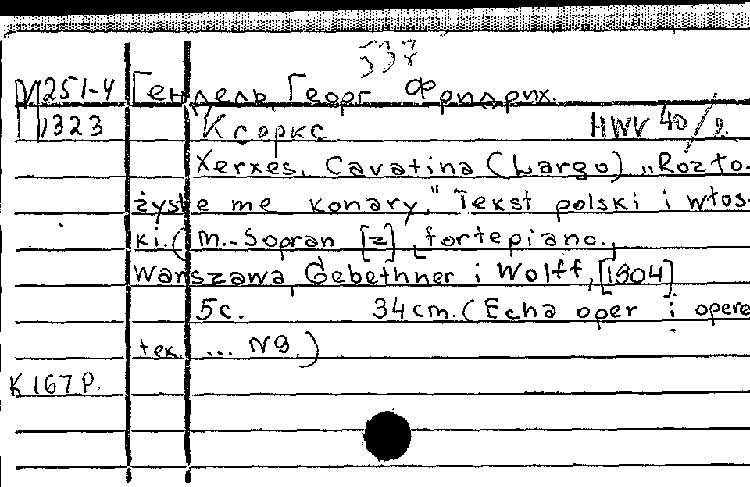 537
M251-4 Гендель, Георг Фридрих.
1323 Ксеркс HWV 40/
Xerxes. Cavatina (Largo) „Rozło-
żyste me konary." Tekst polski i włos-
ki. (M.-Sopran [z] fortepiano.
Warszawa, Gebethner i Wolff, [1904]
5с. 34cm. (Echa oper i opere
tek. ... N9.)
K 167 P.